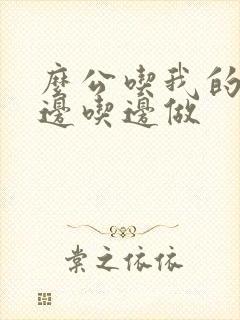 麼公喫我的
邊喫邊做
棠之依依